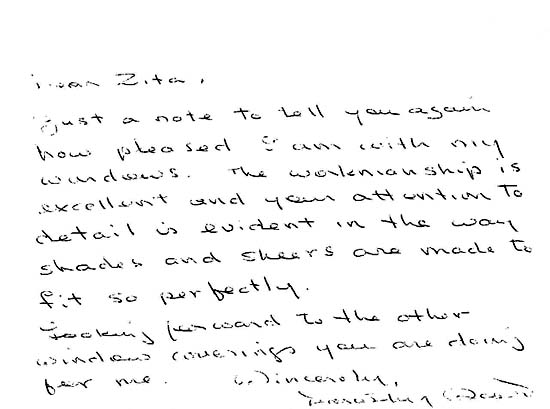 Dear Zita,
Just a note to tell you again
how pleased I am with my
windows. The workmanship is
excellent and your attention to
detail is evident in the way
shades and sheers are made to
fit so perfectly.
Looking forward to the other
window coverings you are doing
for me. Sincerely,